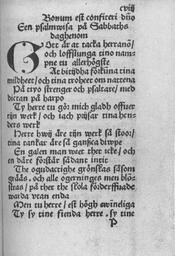 cviij
Bonum est confiteri dño
Een psalmwisa på Sabbaths
daghenom
GOtt är at tacka herranõ/
och loffsiunga tino nam-
pne tu allerhögste
Ae bittijdha förkũna tina
mildheet/och tina troheet om nattena
På tiyo strenger och psaltare/med
dictan på harpo
Ty herre tu gör mich gladh offuer
tijn werk/och iach prijsar tina hen-
ders werk
Herre hwij äre tijn werk så stoor/
tina tanckar äre så ganska diwpe
Een galen man weet ther icke/och
en dåre förstår sådant intit
The ogudactighe grönskas såsom
grääs/och alle ogerninges men blos-
tras/på thet the skola förderffuadhe
warda vtan enda
Men tu herre/est högh ewinneliga
Ty sy tine fienda herre, sy tine
P